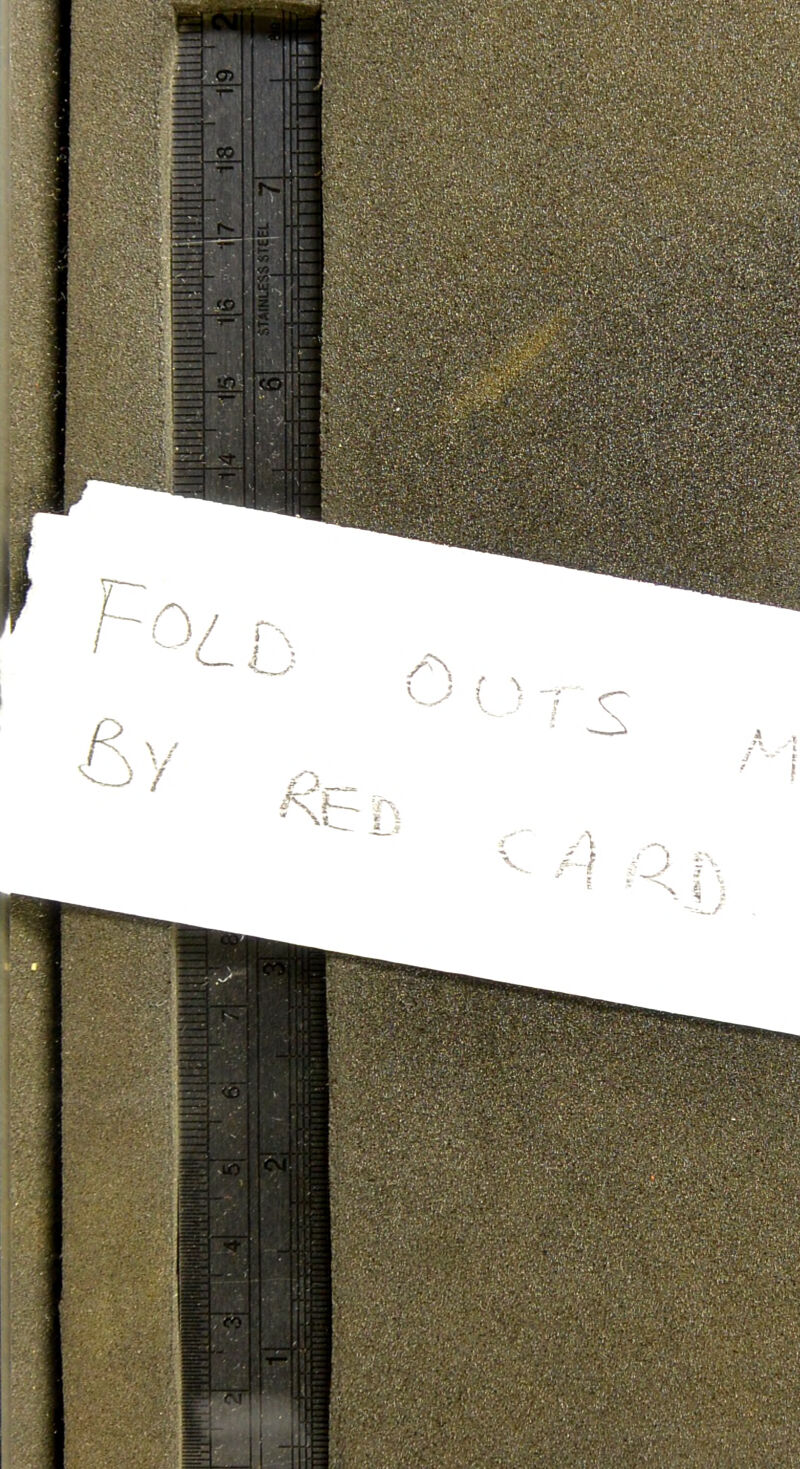 2
19
18
7
17
STAINLESS STEEL
16
15
6
14
FOLD OUTS M
BY RED CARD.
8
3
7
6
5
2
4
3
1
2